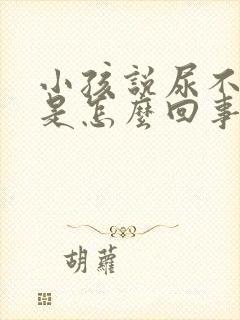 小孩説尿不
是怎麽回事
胡蘿